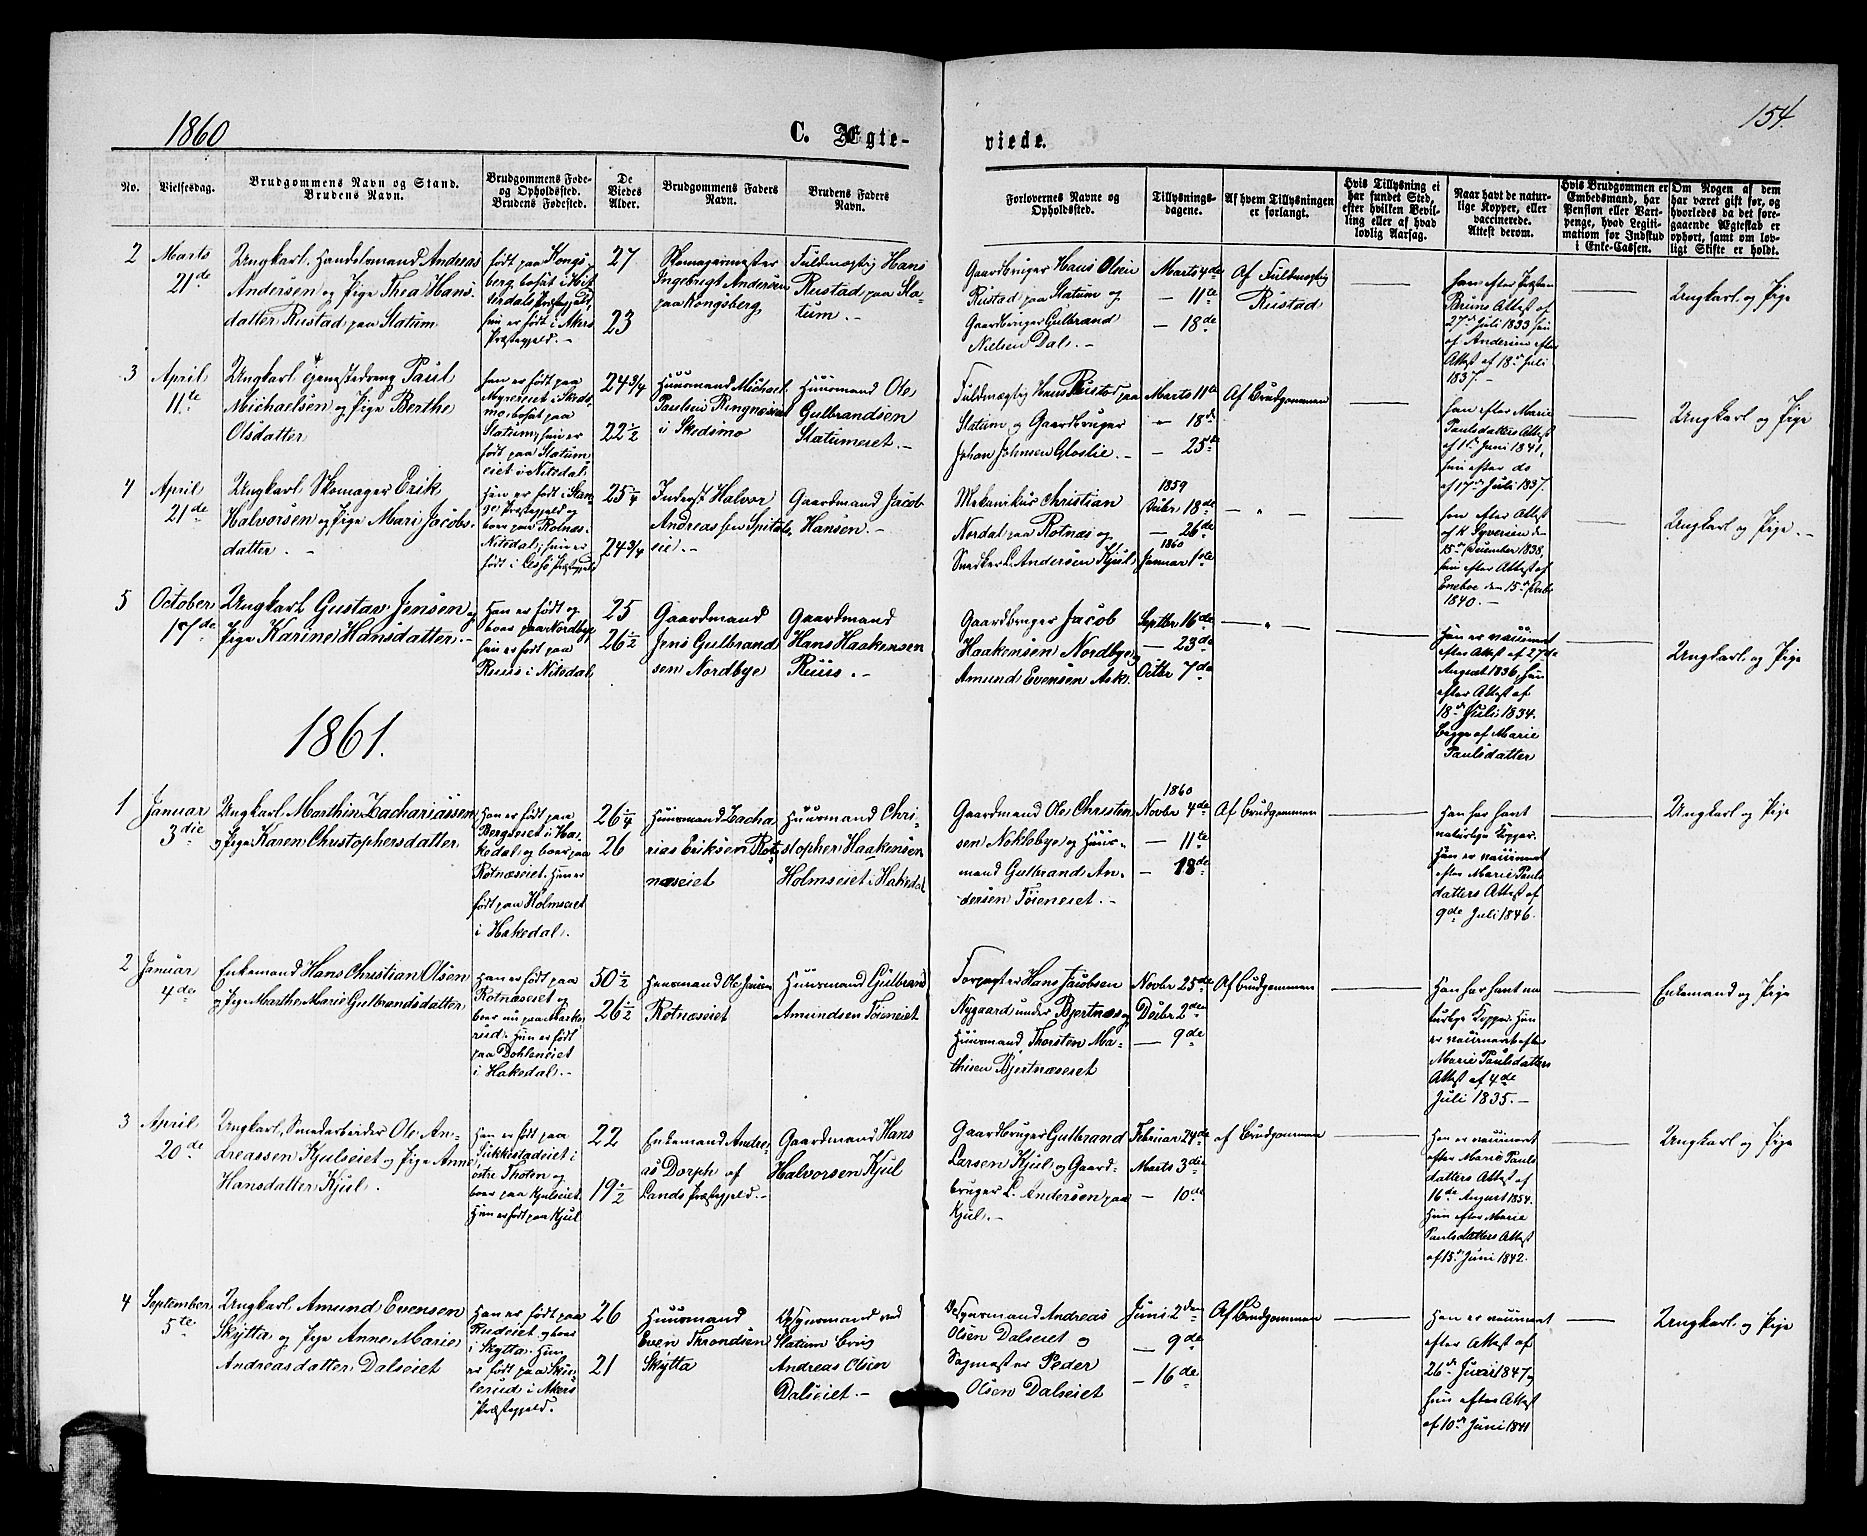 1860
C. Ægte-
viede.
154.
No.
Vielsesdag.
Brudgommens Navn og Stand.
Brudens Navn.
Brudgommens Føde-
og Opholdssted.
Brudens Fødested.
De
Viedes
Alder.
Brudgommens Faders
Navn.
Brudens Faders
Navn.
Forlovernes Navne og
Opholdssted.
Tillysnings-
dagene.
Af hvem Tillysningen
er forlangt.
Hvis Tillysning ei
har fundet Sted,
efter hvilken Bevil-
ling eller af hvad
lovlig Aarsag.
Naar havt de natur-
lige Kopper, eller
vaccinerede.
Attest derom.
Hvis Brudgommen er
Embedsmand, har
Pension eller Vart-
penge, hvad Legiti-
mation for Indskud
i Enke-Cassen.
Om Nogen af dem
har været gift før, og
hvorledes da det fore-
gaaende Ægteskab er
ophørt, samt om lov-
ligt Skifte er holdt.
2
Marts
21de
Ungkarl Handelsmand Andreas
Andersen og Pige Thea Hans
datter Rustad paa Slatum
født paa Kongs
berg, bosat i Hit
terdals Præstegjeld,
hun er født i Akers
Præstegjeld. –
27
23
Skomagermester
Ingebrigt Andersen
paa Kongsberg
Fuldmægtig Hans
Rustad paa Sla-
tum. –
Gaardbruger Hans Olsen
Rustad paa Slatum og
Gaardbruger Gulbrand
Nielsen Dal. –
Marts 4de
– 11te
– 18de
Af Fuldmægtig
Rustad
han efter
Bruns Attest af
27de Juli 1833 hun
af Andersens efter
Attest af 18de Juli
1837. –
Ungkarl og Pige
3
April
11te
Ungkarl Tjenestedreng Paul
Michaelsen og Pige Berthe
Olsdatter
han er født paa
Myreseiet i Skeds-
mo, bosat paa
Slatum, hun er
født paa Slatum
eiet i Nitedal
24 3/4
22 1/2
Huusmand Michael
Paulsen Ringnæseiet
i Skedsmo
Huusmand Ole
Gulbrandsen
Slatumeiet. –
Fuldmægtig Hans Rustad paa
Slatum og Gaardbruger
Johan Johnsen Gloslie. –
Marts 11te
– 18de
– 25te
Af Brudgommen
han efter Marie
Paulsdatters Attest
af 1ste Juni 1841,
hun efter do
af 17de Juli 1837.
Ungkarl og Pige
4
April
21de
Ungkarl Skomager Erik
Halvorsen og Pige Mari Jacobs-
datter. –
Han er født i Stan-
ge Præstegjeld og
boer paa Rotnæs
Nitedal; hun er
født i Præstegjeld
25 1/4
24 3/4
Inderst Halvor
Andreassen Spitals-
eie. –
Gaardmand Jacob
Hansen. –
Mekanikus Christian
Nordal paa Rotnæs og
Snedker L. Andersen Kjul
1859
Decbr 18de
– 26de
1860
Januar 1ste
– " –
han efter Attest
af K. Syversen den
15de December 1838,
hun efter Attest af
Eneboe den 15de Decbr
1840. –
Ungkarl og Pige. –
5
October
17de
Ungkarl Gustav Jensen og
Pige Karine Hansdatter. –
Han er født og
boer paa Nordbye,
hun er født paa
Ruus i Nitedal
25
26 1/2
Gaardmand
Jens Gulbrand
sen Nordbye
Gaardmand
Hans Haakensen
Ruus. –
Gaardbruger Jacob
Haakensen Nordbye og
Amund Evensen Ask.
Septbr 16de
– 23de
Octbr 7de
– " –
Han er vaccineret
efter Attest af 27de
August 1836, hun
efter Attest af
18de Juli 1834.
begge af Marie
Paulsdatter
Ungkarl og Pige
1861.
1
Januar
3die
Ungkarl Marthin Zachariassen
og Pige Karen Christophersdatter
Han er født paa
Bergseiet i Ha-
kedal og boer paa
Rotnæseiet. Hun er
født paa Holmseiet
i Hakedal.
26 1/4
26
Huusmand Zacha
rias Eriksen Rot-
næseiet
Huusmand Chri-
stopher Haakensen
Holmseiet i Hakedal
Gaardmand Ole Christen
sen Nøklebye og Huus-
mand Gulbrand An-
dersen Tøieneiet. –
1860
Novbr 4de
– 11te
– 18de
Af Brudgommen
Han har havt
naturlige Kopper.
Hun er vaccineret
efter Marie Pauls
datters Attest af
9de Juli 1846.
Ungkarl og Pige
2
Januar
4de
Enkemand Hans Christian Olsen
og Pige Marthe Marie Gulbrandsdatter
Han er født paa
Rotnæseiet og
boer nu paa Marke
rud. Hun er født
paa Dohleneiet
i Hakedal. –
50 1/2
26 1/2
Huusmand Ole Jensen
Rotnæseiet
Huusmand Gulbrand
Amundsen Tøieneiet
Forpagter Hans Jacobsen
Nygaard under Bjertnæs og
Huusmand Thorsten Ma-
thisen Bjertnæseiet
Novbr 25de
Decbr 2de
– 9de
Af Brudgommen
Han har havt na
turlige Kopper. Hun
er vaccineret efter
Marie Paulsdatters
Attest af 4de
Juli 1835. –
Enkemand og Pige
3
April
20de
Ungkarl, Smedarbeider Ole An-
dreassen Kjulseiet og Pige Anne
Hansdatter Kjul.
Han er født paa
Sukkestadeiet i
østre Thoten og
boer paa Kjulseiet.
Hun er født paa Kjul
22
19 1/2
Enkemand Andre-
as Dorph af
Lands Præstegjeld. –
Gaardmand Hans
Halvorsen Kjul
Gaardbruger Gulbrand
Larsen Kjul og Gaard-
bruger L. Andersen paa
Kjul. –
Februar 24de
Marts 3die
– 10de
af Brudgommen
Han er vaccineret
efter Marie Pauls
datters Attest af
16de August 1854.
Hun efter Marie
Paulsdatters Attest
af 15de Juni 1842.
Ungkarl og Pige
4
September
5te
Ungkarl Amund Evensen
Skytta og Pige Anne Marie
Andreasdatter Dalseiet
Han er født paa
Rudeiet og boer
i Skytta. Hun
er født paa Skil-
lerud i Akers
Præstegjeld.
26
21
Huusmand
Even Throndsen
Skytta
Opsynsmand ved
Slatum Brug
Andreas Olsen
Dalseiet. –
Opsynsmand Andreas
Olsen Dalseiet og
Sagmester Peder
Olsen Dalseiet
Juni 2den
– 9de
– 16de
Af Brudgommen
Han er vaccineret
efter Attest af
26de Juni 1847 og
hun efter Attest
af 10de Juni 1841
Ungkarl og Pige